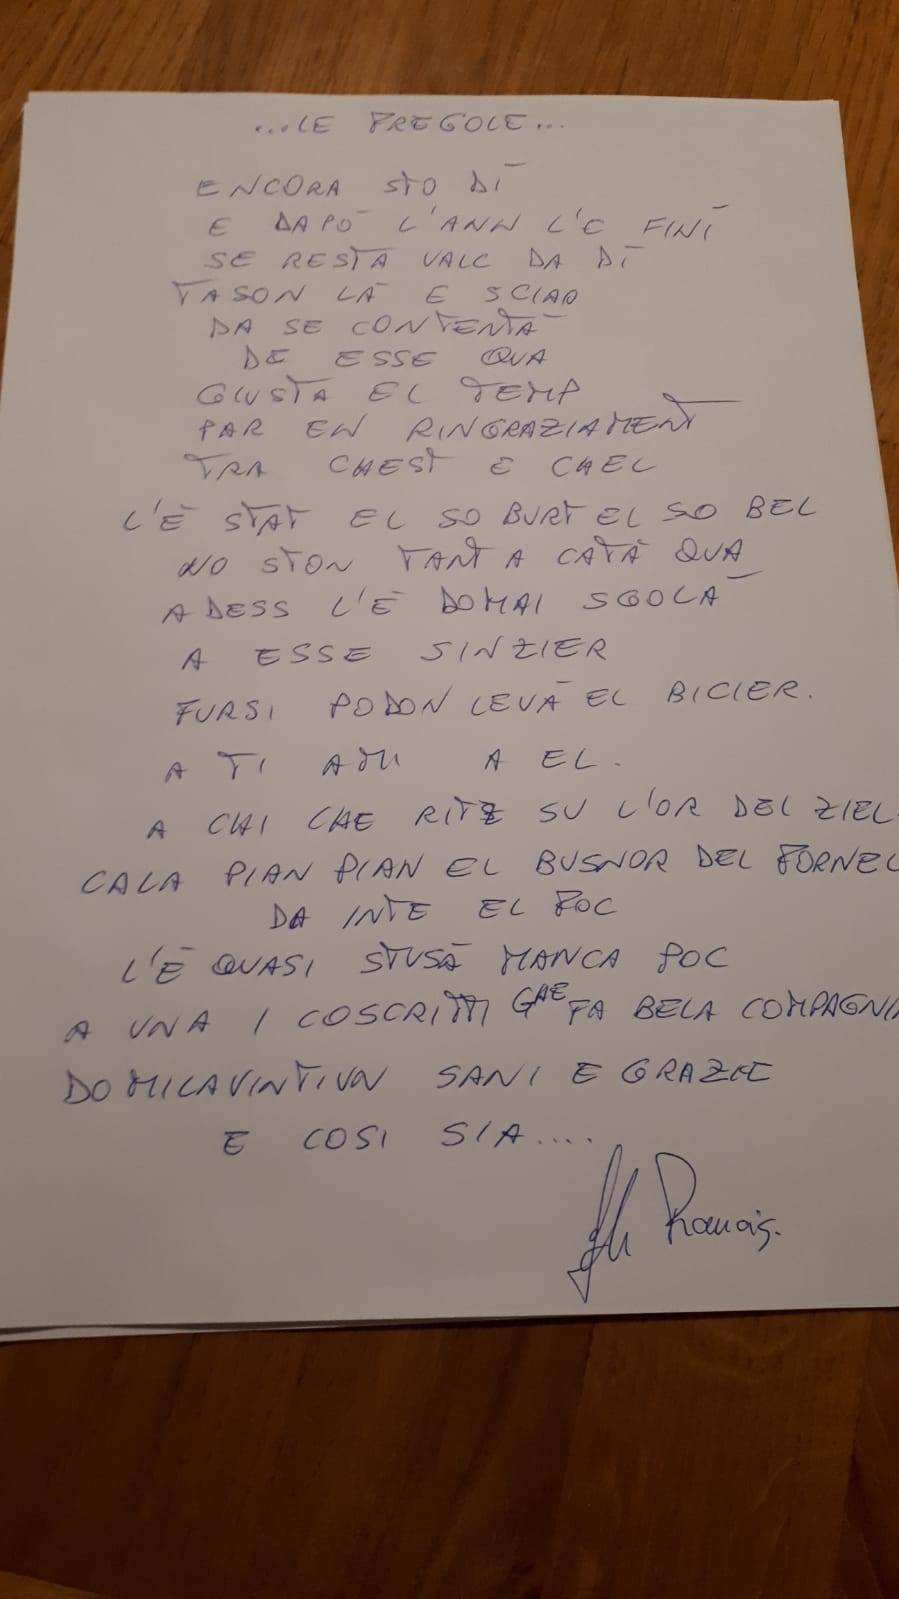 ...LE FREGOLE...
ENCORA STO DÌ
E DAPÒ L'ANN L'E FINÌ
SE RESTA VALC DA DÌ
TASON LÀ E SCIAO
DA SE CONTENTÀ
DE ESSE QUA
GIUSTA EL TEMP
PAR EN RINGRAZIAMENT
TRA CHEST E CHEL
L'È STAT EL SO BURT EL SO BEL
NO STON TANT A CATÀ QUA
ADESS L'È DOMAI SGOLÀ
A ESSE SINZIER
FURSI PODON LEVÀ EL BICIER.
A TI A MI A EL.
A CHI CHE RITZ SU L'OR DEL ZIEL
CALA PIAN PIAN EL BUSNOR DEL FORNEL
DA INTE EL FOC
L'È QUASI STUSÀ MANCA POC
A UNA I COSCRITTI GHE FA BELA COMPAGNIA
DOMILAVINTIUN SANI E GRAZIE
E COSI SIA....